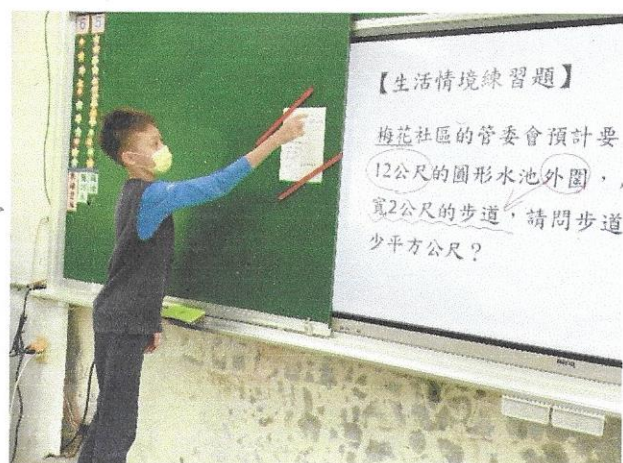 【生活情境練習題】
梅花社區的管委會預計要
12公尺的圓形水池外圍，
寬2公尺的步道，請問步道
少平方公尺？